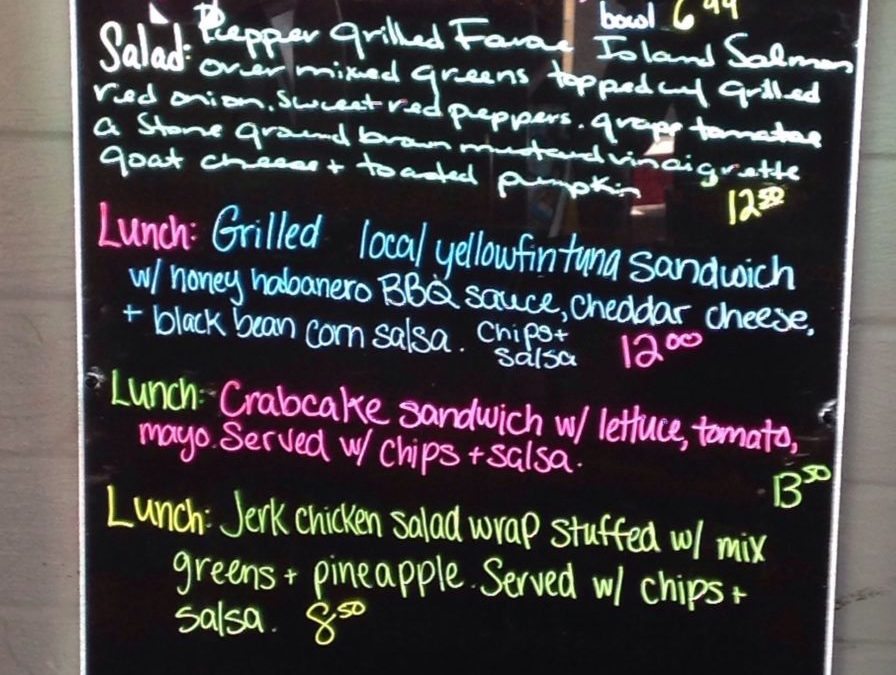 bowl 6.99
Salad: Pepper grilled Faroe Island Salmon
over mixed greens topped w/ grilled
red onion, sweet red peppers, grape tomatoes
a stone ground brown mustard vinaigrette
goat cheese + toasted pumpkin
12.50
Lunch: Grilled local yellowfin tuna sandwich
w/ honey habanero BBQ sauce, cheddar cheese,
+ black bean corn salsa. Chips +
salsa 12.00
Lunch: Crabcake sandwich w/ lettuce, tomato,
mayo. Served w/ chips + salsa.
13.50
Lunch: Jerk chicken salad wrap stuffed w/ mix
greens + pineapple. Served w/ chips +
salsa. 8.50